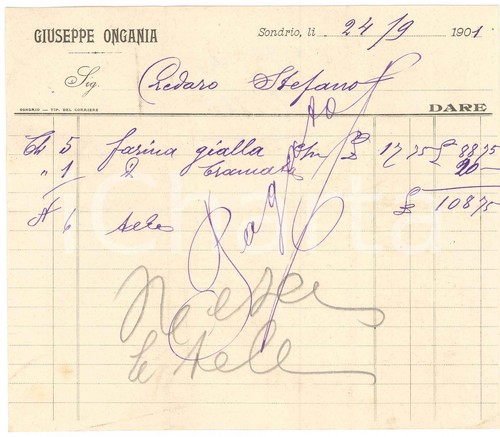 GIUSEPPE ONGANIA
Sondrio, li 24/9 1901
Sig. Credaro Stefano
SONDRIO — TIP. DEL CORRIERE
DARE
5 farina gialla £ 17,75 £ 88 75
" 1 D. Cramata 20 —
£ 108 75
N 6 tele
Pagato
le tele